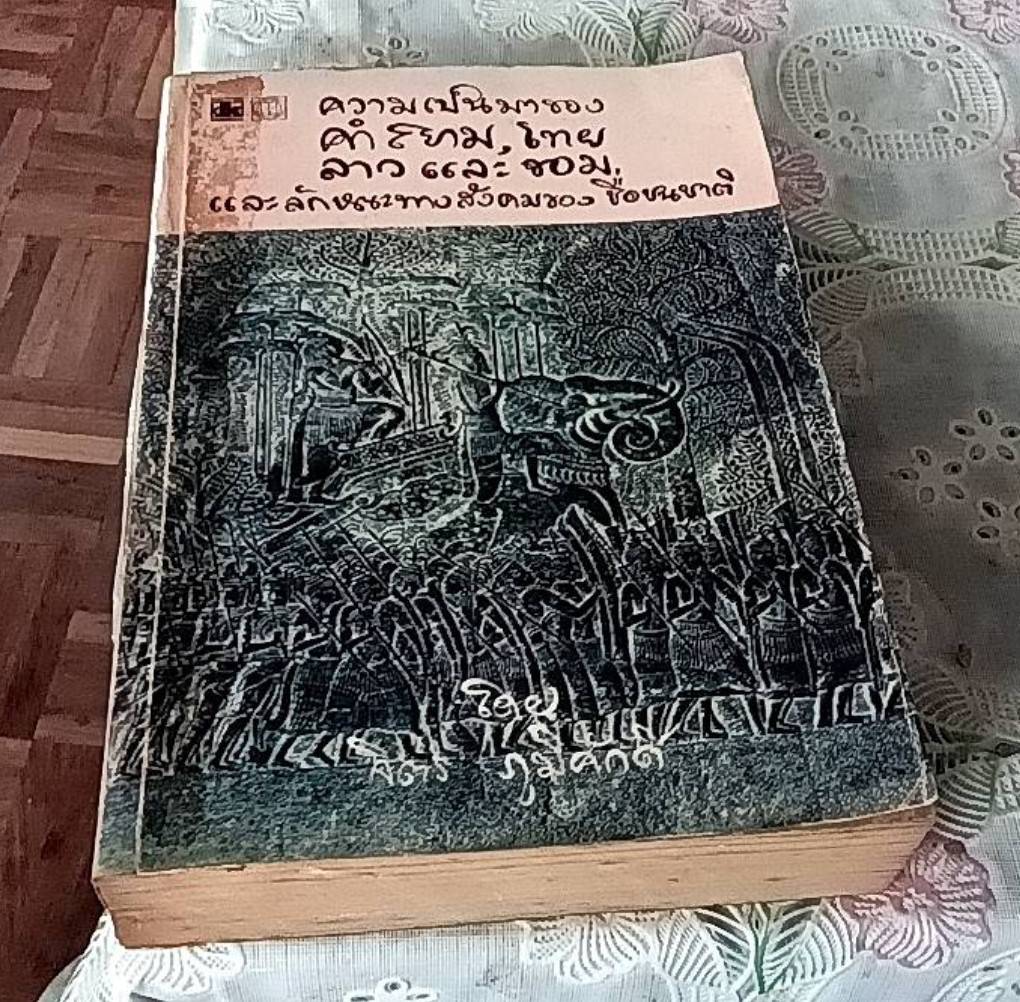 ความเป็นมาของ
คำสยาม, ไทย
ลาว และ ขอม,
และ ลักษณะทางสังคมของ ชื่อชนชาติ
โดย
จิตร ภูมิศักดิ์